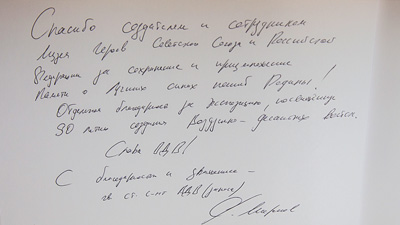 Спасибо создателям и сотрудникам
Музея Героев Советского Союза и Российской
Федерации за сохранение и преумножение
Памяти о Лучших сынах нашей Родины!
Отдельная благодарность за экспозицию, посвящённую
90-летию создания Воздушно-десантных войск.
Слава ВДВ!
С благодарностью и уважением
гв. ст. с-нт ВДВ (запаса)